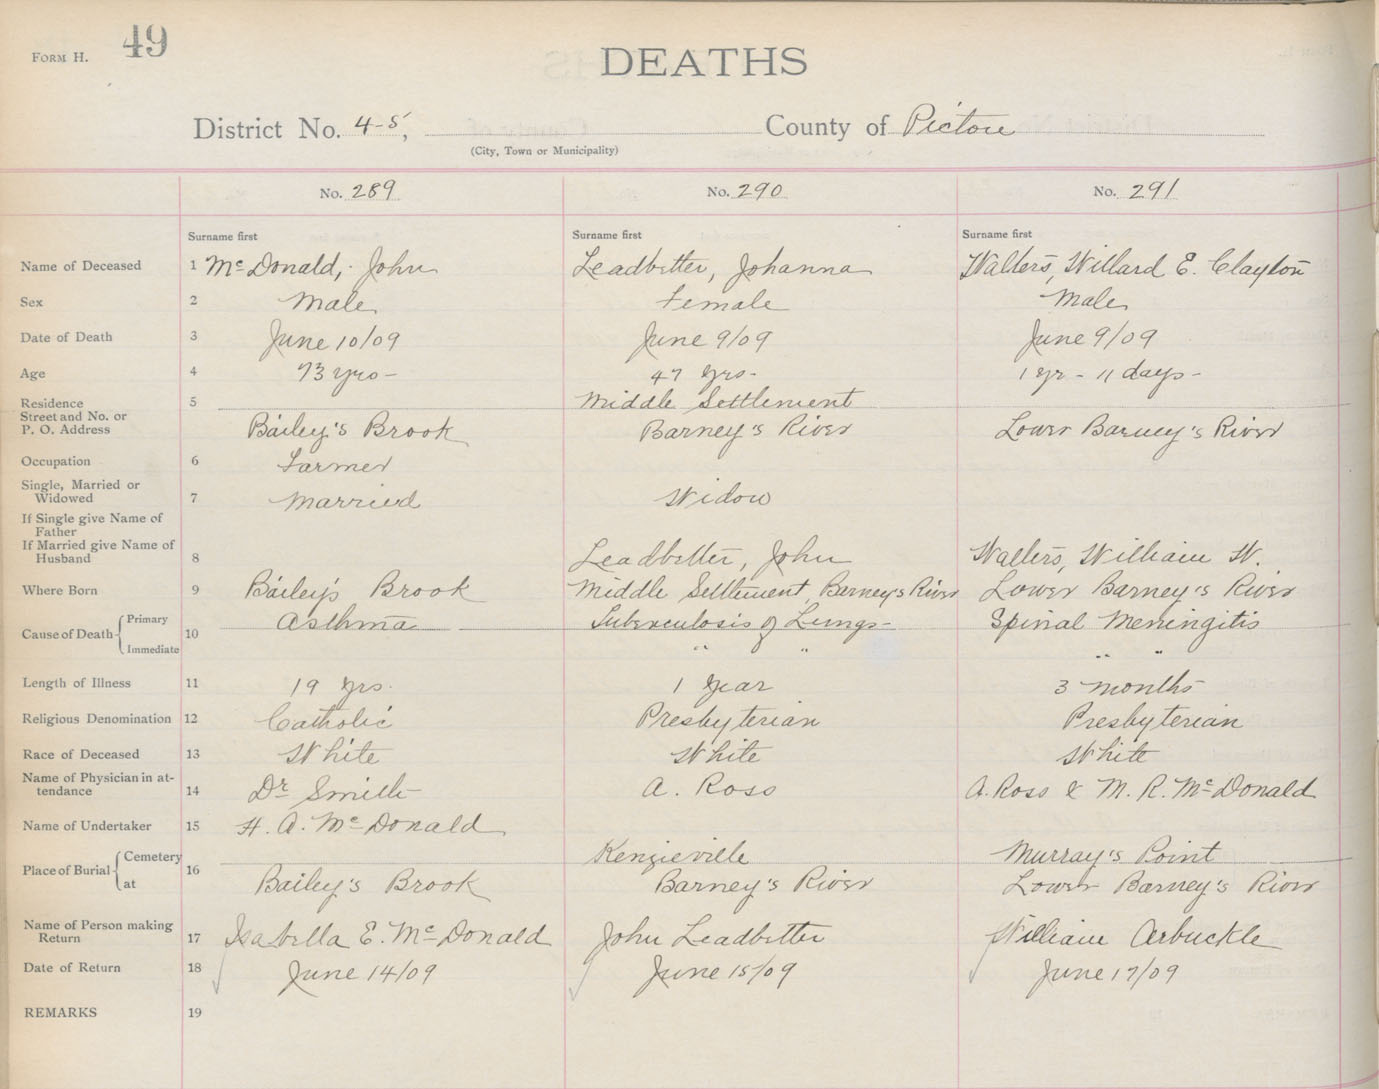 FORM H. 49
DEATHS
District No. 4-5, County of Pictou
(City, Town or Municipality)
No. 289 No. 290 No. 291
Surname first Surname first Surname first
Name of Deceased 1 Mc Donald, John Leadbetter, Johanna Walters, Willard E. Clayton
Sex 2 Male Female Male
Date of Death 3 June 10/09 June 9/09 June 9/09
Age 4 73 yrs- 47 yrs- 1 yr - 11 days-
Residence 5 Middle Settlement
Street and No. or
P. O. Address Bailey's Brook Barney's River Lower Barney's River
Occupation 6 Farmer
Single, Married or
Widowed 7 Married Widow
If Single give Name of
Father
If Married give Name of
Husband 8 Leadbetter, John Walters, William W.
Where Born 9 Bailey's Brook Middle Settlement, Barney's River Lower Barney's River
Cause of Death Primary 10 Asthma Tuberculosis of Lungs- Spinal Meningitis
Immediate " " " "
Length of Illness 11 19 yrs. 1 Year 3 months
Religious Denomination 12 Catholic Presbyterian Presbyterian
Race of Deceased 13 White White White
Name of Physician in at-
tendance 14 Dr Smith A. Ross A. Ross & M. R. Mc Donald
Name of Undertaker 15 H. A. Mc Donald
Place of Burial Cemetery 16 Kenzieville Murray's Point
at Bailey's Brook Barney's River Lower Barney's River
Name of Person making
Return 17 Isabella E. Mc Donald John Leadbetter William Arbuckle
Date of Return 18 June 14/09 June 15/09 June 17/09
REMARKS 19